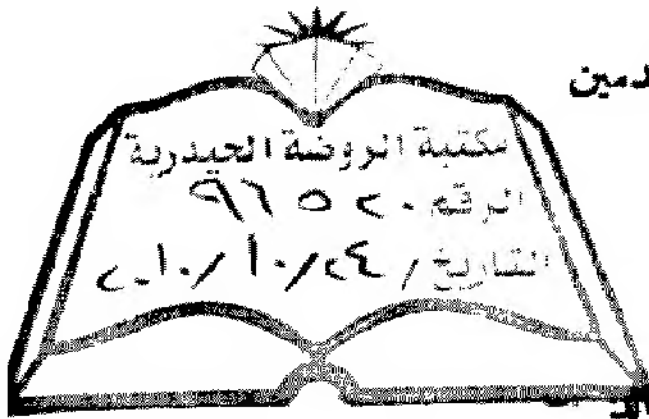 دمين
مكتبة الروضة الحيدرية
الرقم ٩٦٥٢٠
التاريخ / ٢٤/١٠/٢٠١٠